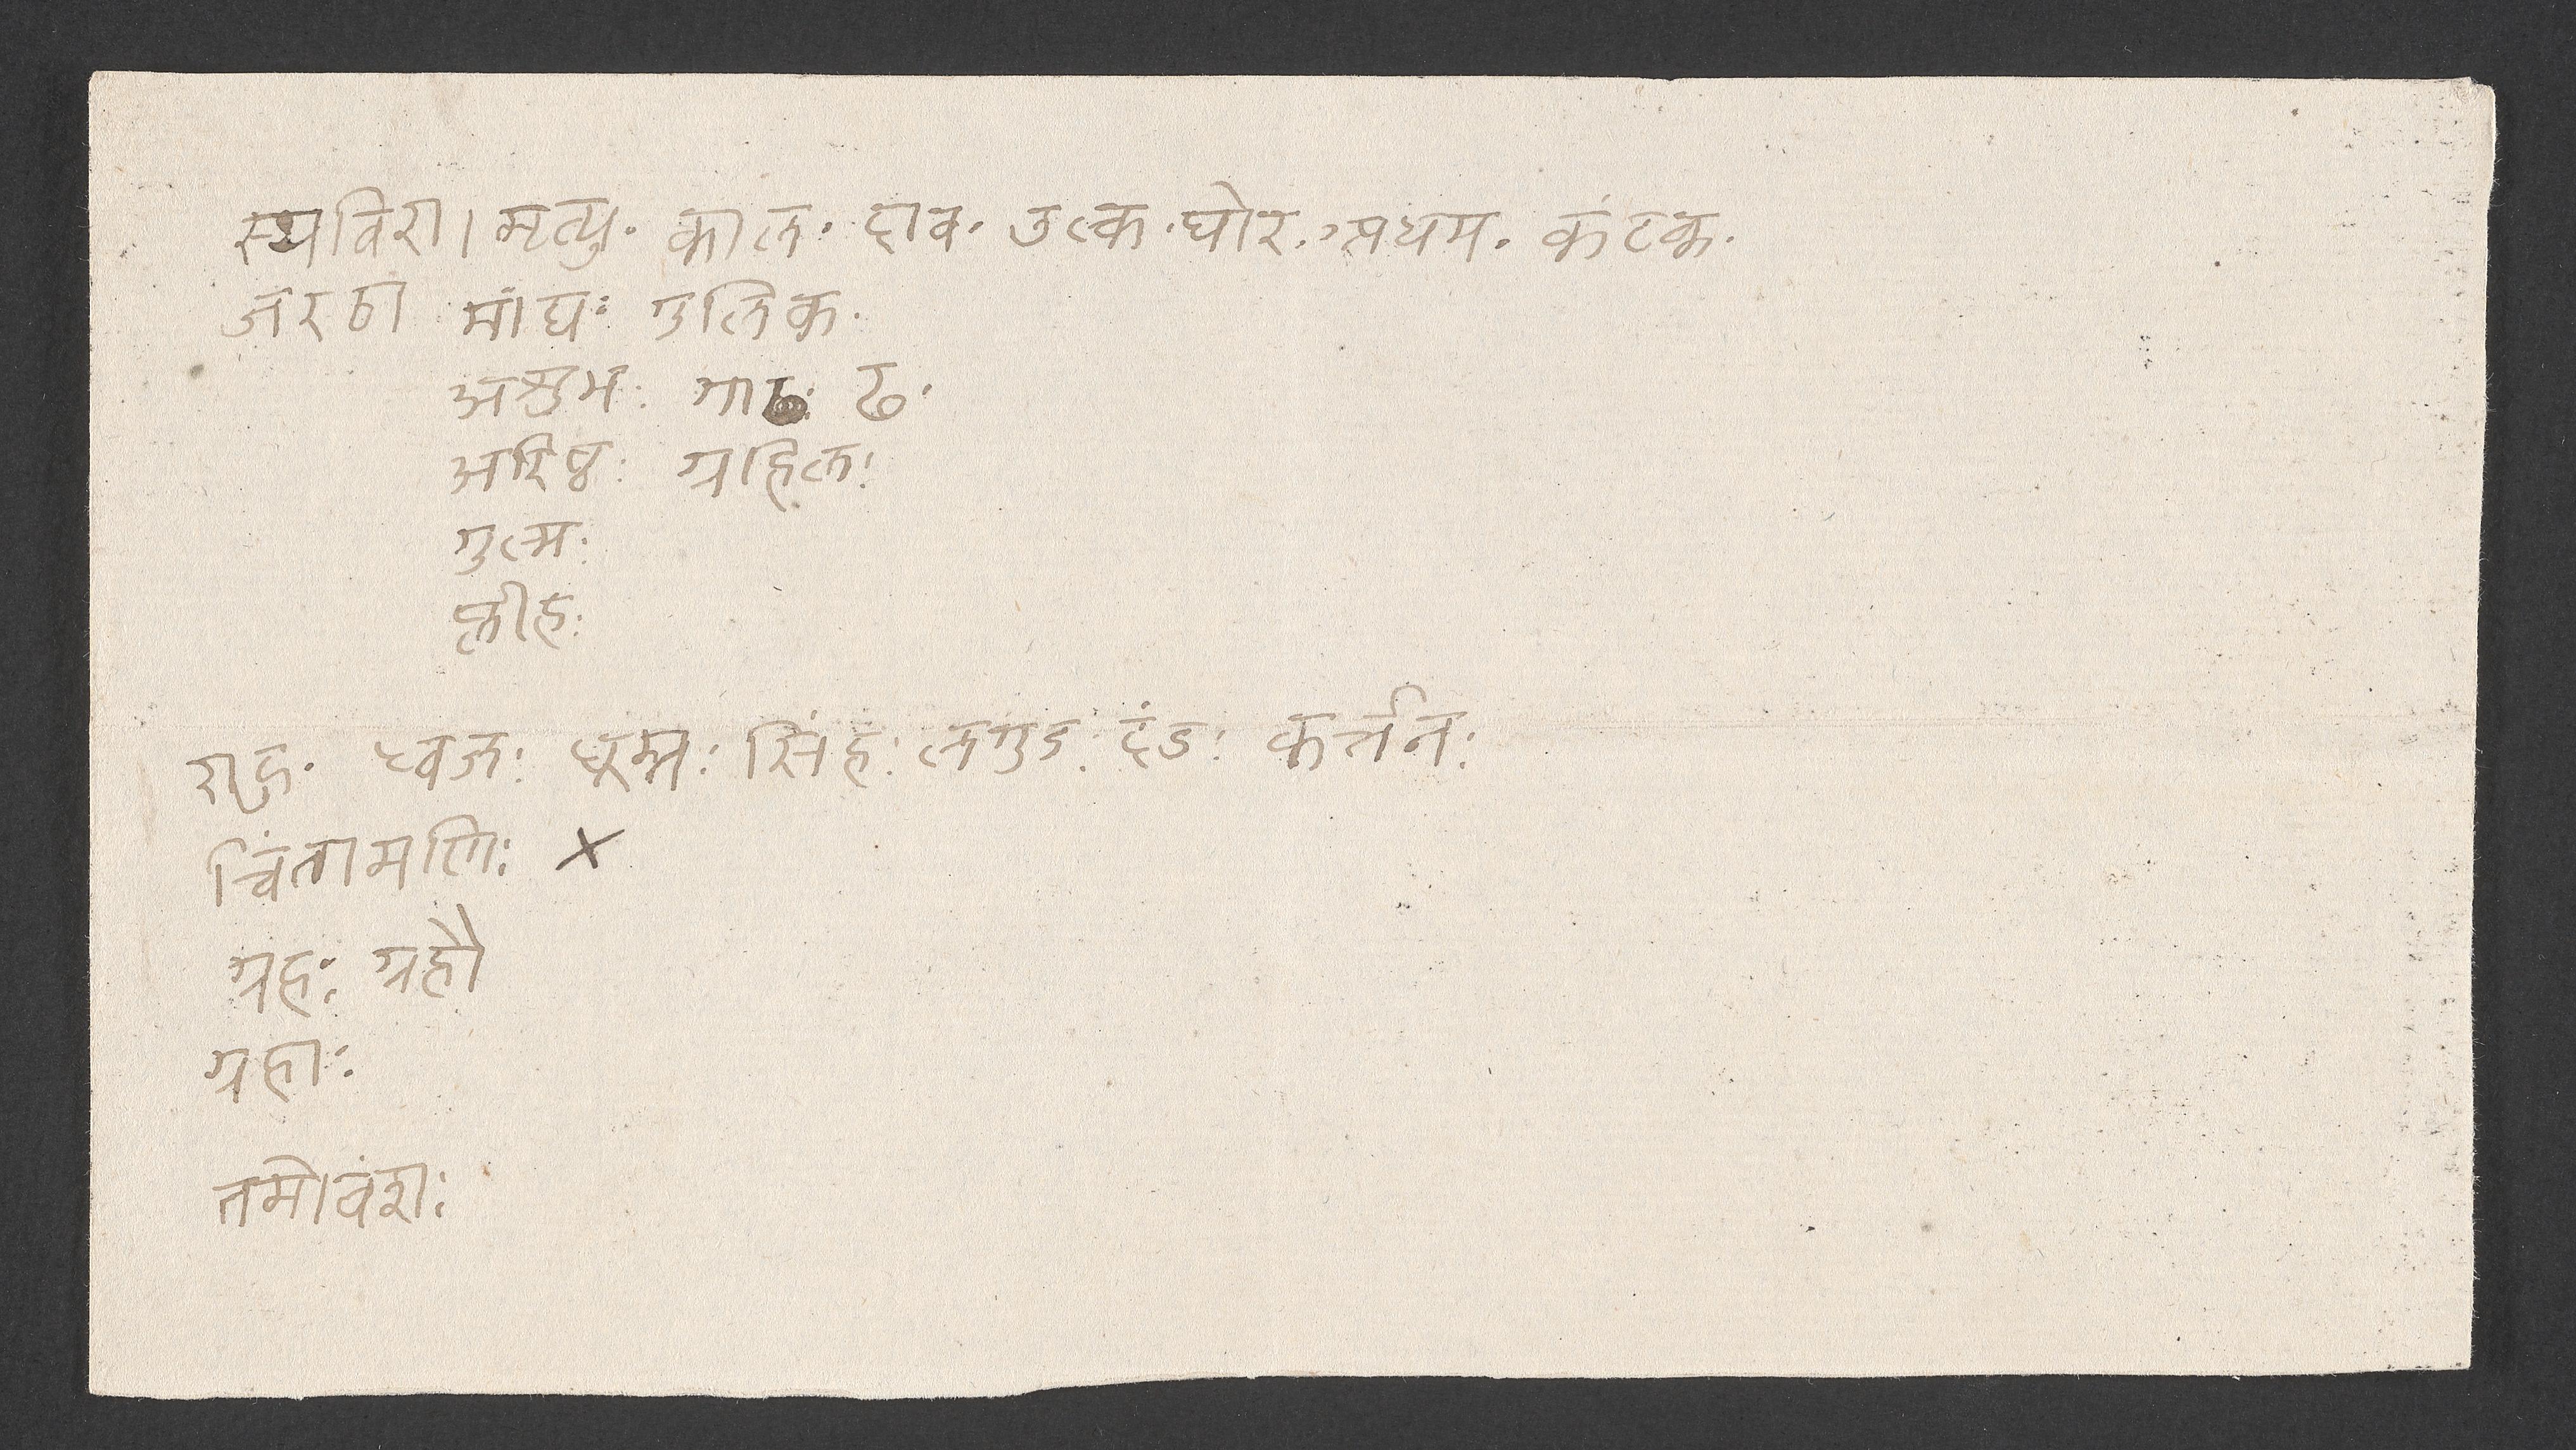 स्थविरा। मृत्यु. काल. दाव. उल्क. घोर. अधम. कंटक.
जरठा मांद्यः गुलिक.
अशुभः गाढः ढ.
अरिष्ठः ग्रहिलः
गुल्मः
प्लीहः
राहु. ध्वजः धूम्रः सिंहः लगुडः दंडः कर्त्तनः
चिंतामणिः ×
ग्रहः ग्रहौ
ग्रहाः
तमोवंशः